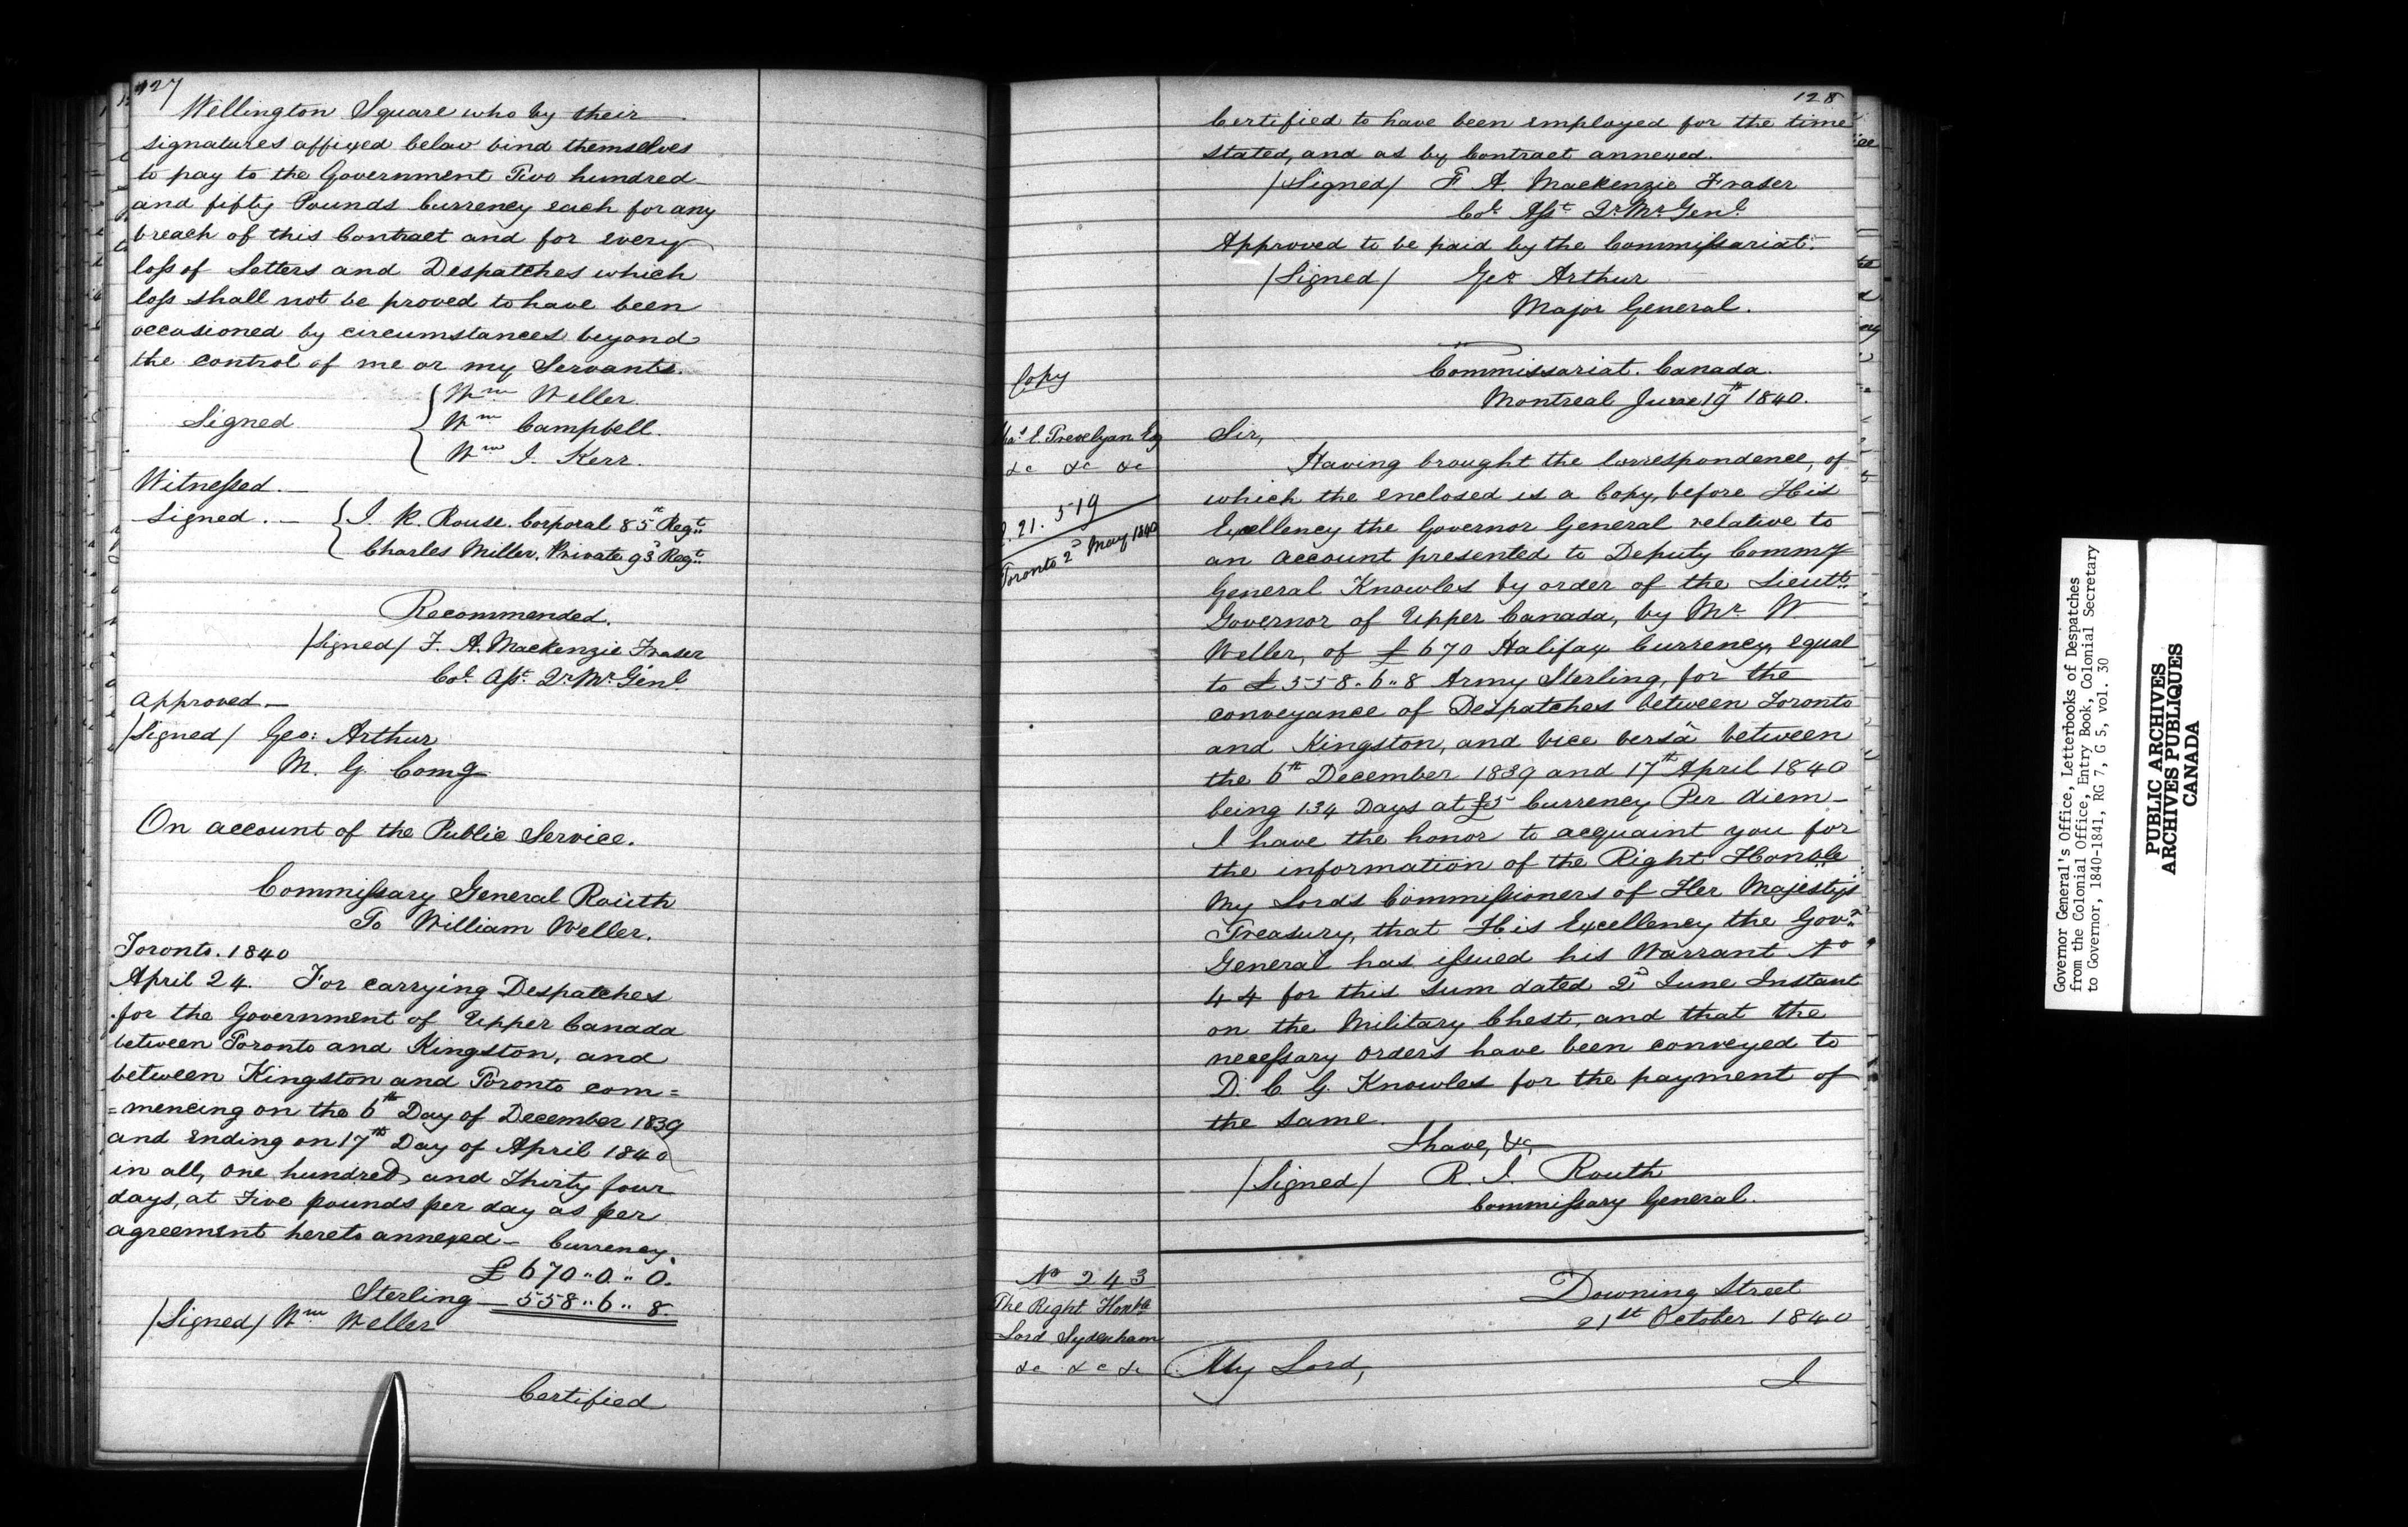 127
Wellington Square who by their
signatures affixed below bind themselves
to pay to the Government Two hundred
and fifty Pounds Currency each for any
breach of this Contract and for every
loss of Letters and Despatches which
loss shall not be proved to have been
occasioned by circumstances beyond
the control of me or my Servants.
Signed
Wm Weller
Wm Campbell.
Wm I. Kerr.
Witnessed.
Signed. — I. R. Rouse. Corporal 85th Regt.
Charles Miller. Private 93d Regt.
Recommended.
/Signed/ F. A. Mackenzie Fraser
Col. Asst. Qr. Mr. Genl.
Approved —
/Signed/ Geo: Arthur
M. G. Comg
On account of the Public Service.
Commissary General Routh
To William Weller.
Toronto. 1840
April 24. For carrying Despatches
for the Government of Upper Canada
between Toronto and Kingston, and
between Kingston and Toronto com=
=mencing on the 6th Day of December 1839
and ending on 17th Day of April 1840
in all, one hundred and Thirty four
days, at Five pounds per day as per
agreement hereto annexed — Currency
£670"0"0.
Sterling 558"6"8.
/Signed/ Wm Weller
Certified
128
Certified to have been employed for the time
stated, and as by Contract annexed.
/Signed/ F A. Mackenzie Fraser
Col. Asst. Qr. Mr. Genl.
Approved to be paid by the Commissariat.
/Signed/ Geo Arthur
Major General.
Copy
Commissariat. Canada.
Montreal June 19th 1840.
Chas. E. Trevelyan Esq
&c &c &c
21. 519
Toronto 2d May 1840
Sir,
Having brought the Correspondence, of
which the enclosed is a Copy, before His
Excellency the Governor General relative to
an account presented to Deputy Commy
General Knowles by order of the Lieutt.
Governor of Upper Canada, by Mr. W
Weller, of £670 Halifax Currency, equal
to £558.6"8 Army Sterling, for the
conveyance of Despatches between Toronto
and Kingston, and vice versâ between
the 6th December 1839 and 17th April 1840
being 134 Days at £5 Currency Per diem —
I have the honor to acquaint you for
the information of the Right Honble
My Lords Commissioners of Her Majesty's
Treasury, that His Excellency the Govr.
General has issued his Warrant No
44 for this Sum dated 2d June Instant
on the Military Chest, and that the
necessary orders have been conveyed to
D. C. G. Knowles for the payment of
the same.
I have, &c
/Signed/ R. I. Routh
Commissary General.
No 243
The Right Honble
Lord Sydenham
&c &c &c
Downing Street
21st October 1840
My Lord,
I
Governor General's Office, Letterbooks of Despatches
from the Colonial Office, Entry Book, Colonial Secretary
to Governor, 1840-1841, RG 7, G 5, vol. 30
PUBLIC ARCHIVES
ARCHIVES PUBLIQUES
CANADA